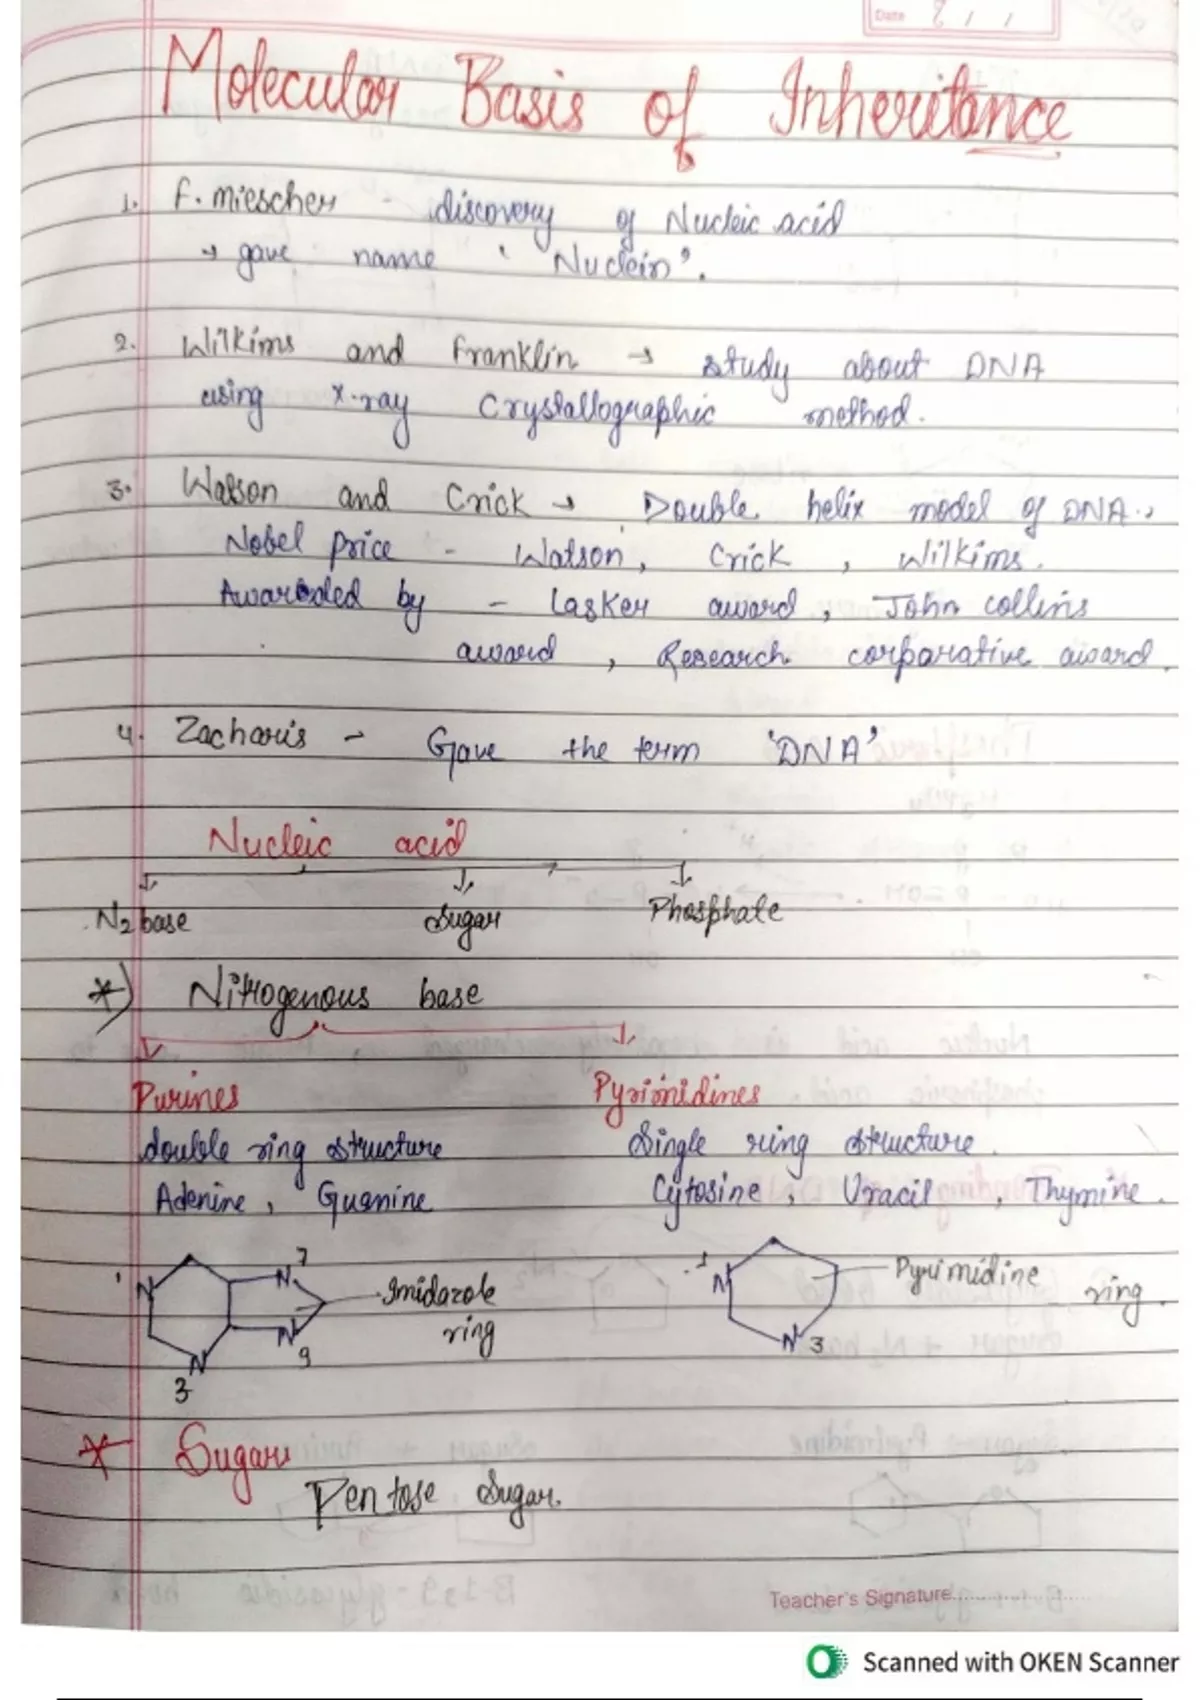 Date 8 / /
Molecular Basis of Inheritance
1. F. miescher - discovery of Nucleic acid
→ gave name 'Nuclein'.
2. Wilkims and Franklin → study about DNA
using X-ray Crystallographic method.
3. Watson and Crick → Double helix model of DNA.
Nobel price - Watson, Crick, Wilkims.
Awarded by - Lasker award, John collins
award, Research corparative award.
4. Zacharis - Gave the term 'DNA'
Nucleic acid
N2 base Sugar Phosphate
*) Nitrogenous base
Purines Pyrimidines
double ring structure Single ring structure.
Adenine, Guanine Cytosine, Uracil, Thymine.
1 N N 7 Imidazole
ring
N 9
N
3
1 N Pyrimidine ring.
N 3
* Sugar
Pentose Sugar.
Teacher's Signature
Scanned with OKEN Scanner